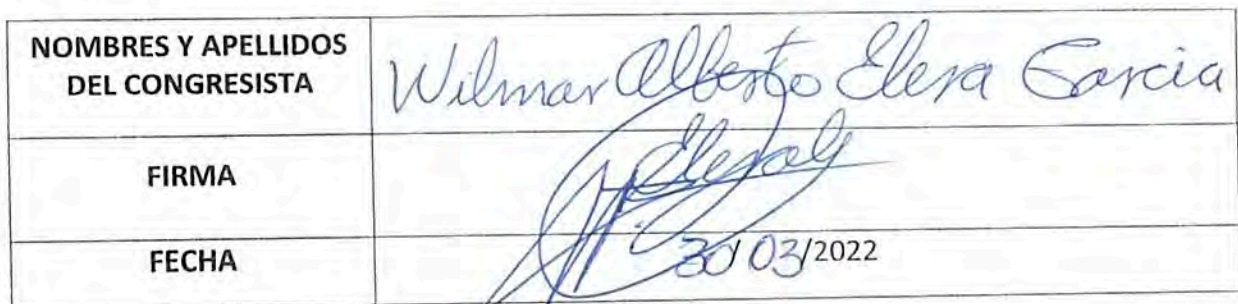 NOMBRES Y APELLIDOS
DEL CONGRESISTA
Wilmar Alberto Elera Garcia
FIRMA
FECHA
30/03/2022